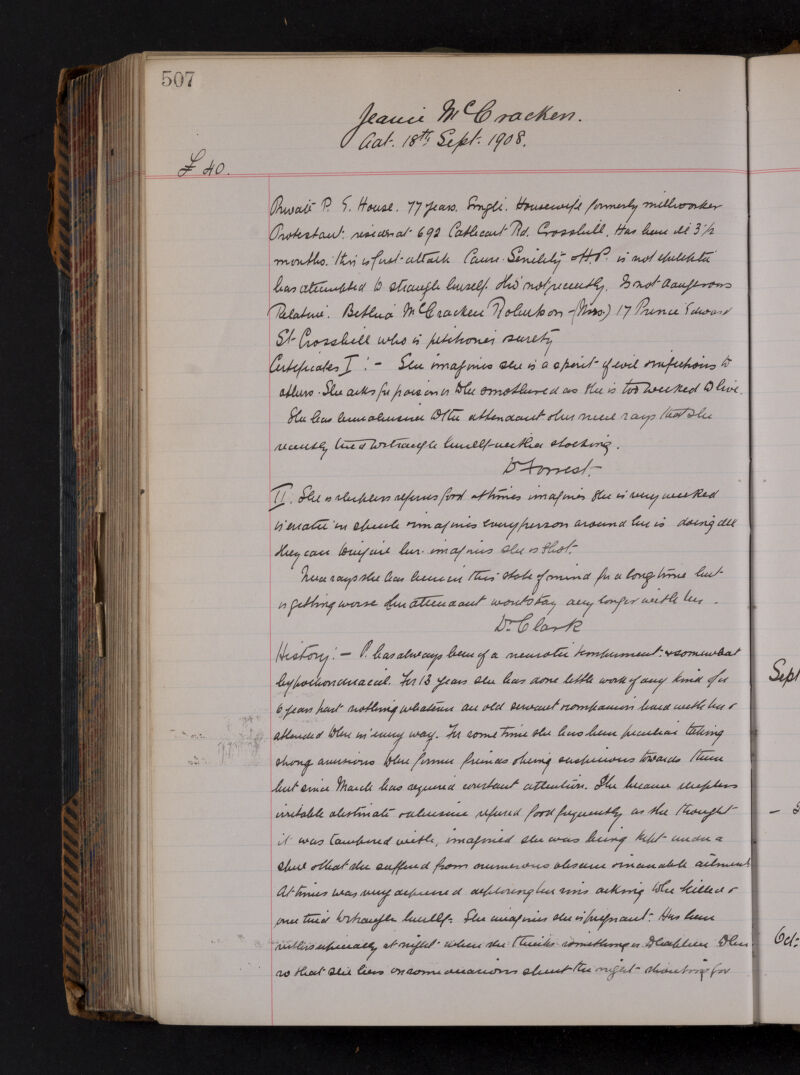 507
Jeanie McCracken.
aat. 18th Sept. 1908.
£40.
Private P. G. House. 77 years. Single. Housewife formerly millworker
Protestant. resident at 692 Cathcart Rd. Crosshill. Has been ill 3½
months. this is first attack Cause Senility & H.P. is not epileptic
has attempted to strangle herself tho' not recently. Is not dangerous
Relative. Bethia McCracken Robertson (Mrs) 17 Prince Edward
St Crosshill who is petitioner surety
Certificates I :- She imagines she is a spirit of evil & infectious to
others. She asks for poison or to be smothered as she is too wicked to live.
She has been abusive to the attendant & her niece says that she
recently tried to strangle herself with a stocking.
Dr Forrest.
II. She is sleepless refuses food at times imagines she is very wicked
is erratic in speech & imagines every person around her is doing all
they can to injure her. imagines she is shot.
Niece says she has been in this state of mind for a long time but
is getting worse & her attendant wont stay any longer with her.
Dr Clark
History :- P. has always been of a neurotic temperament & somewhat
hypochondriacal. For 13 years she has done little work of any kind & for
6 years past nothing whatever an old servant & companion lived with her &
attended to her in every way. For some time she has been peculiar taking
strong aversions to her former friends & being suspicious towards them
but since March has required constant attention. She became sleepless
irritable obstinate & abusive refused food frequently as she thought
it was tampered with, imagined she was being kept under a
spell & that she suffered from numerous obscure & incurable ailments
At times was very depressed deploring her sins asking to be killed &
once tried to strangle herself. She imagines she is pregnant. Has been
restless especially at night when she thinks something is to happen to her
so that she has on some occasions spent the night shouting for
Sept
Oct: